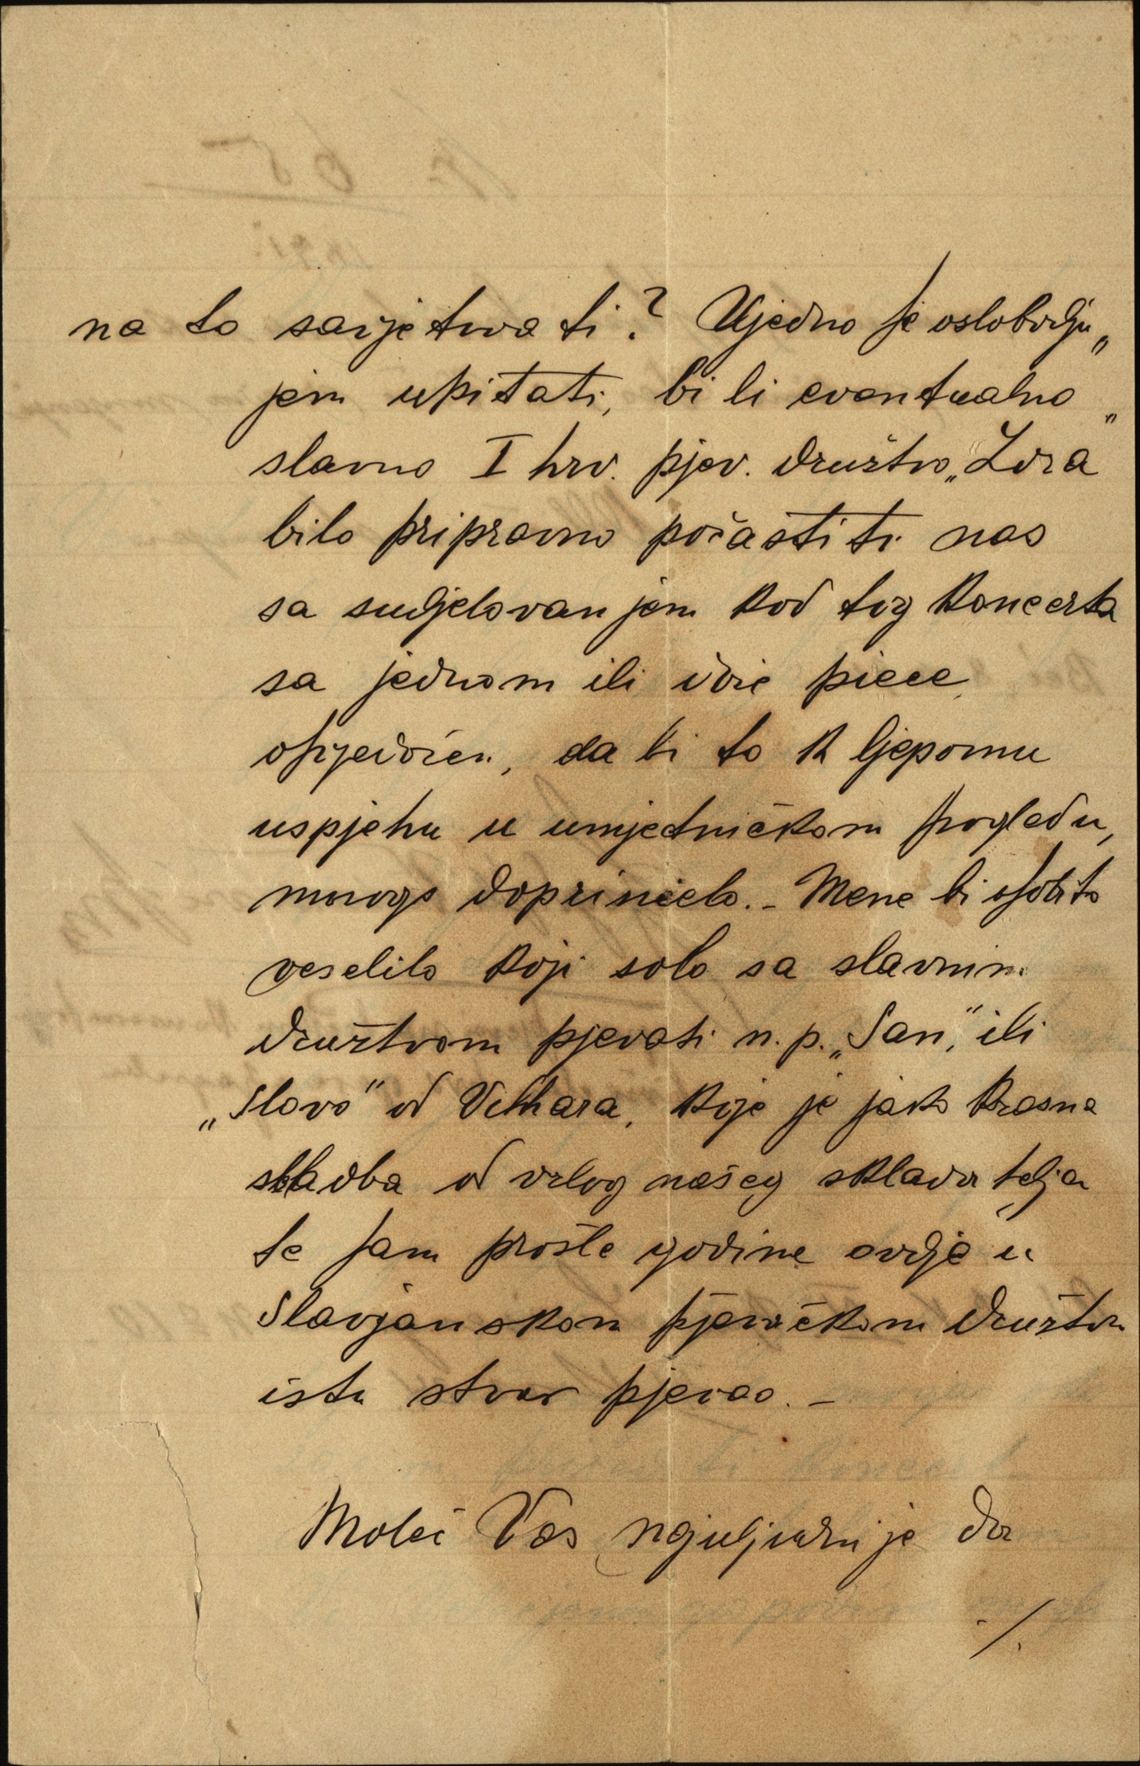 na to savjetovati? Ujedno se oslobodju„
jem upitati, bi li eventualno „
slavno I hrv. pjev. družtvo „Zora"
bilo pripravno počastiti nas
sa sudjelovanjem kod tog koncerta
sa jednom ili dvie piece
osvjedočen, da bi to k ljepomu
uspjehu u umjetničkom pogledu,
mnogo doprinielo. - Mene bi osobito
veselilo koji solo sa slavnim
družtvom pjevati n. p. „San", ili
„Slavo" od Vilhara, koje je jako krasna
skladba od vrlog našeg skladatelja
te sam prošle godine ovdje u
Slavjanskom pjevačkom družtvu
istu stvar pjevao. -
Moleć Vas najuljudnije da
./.